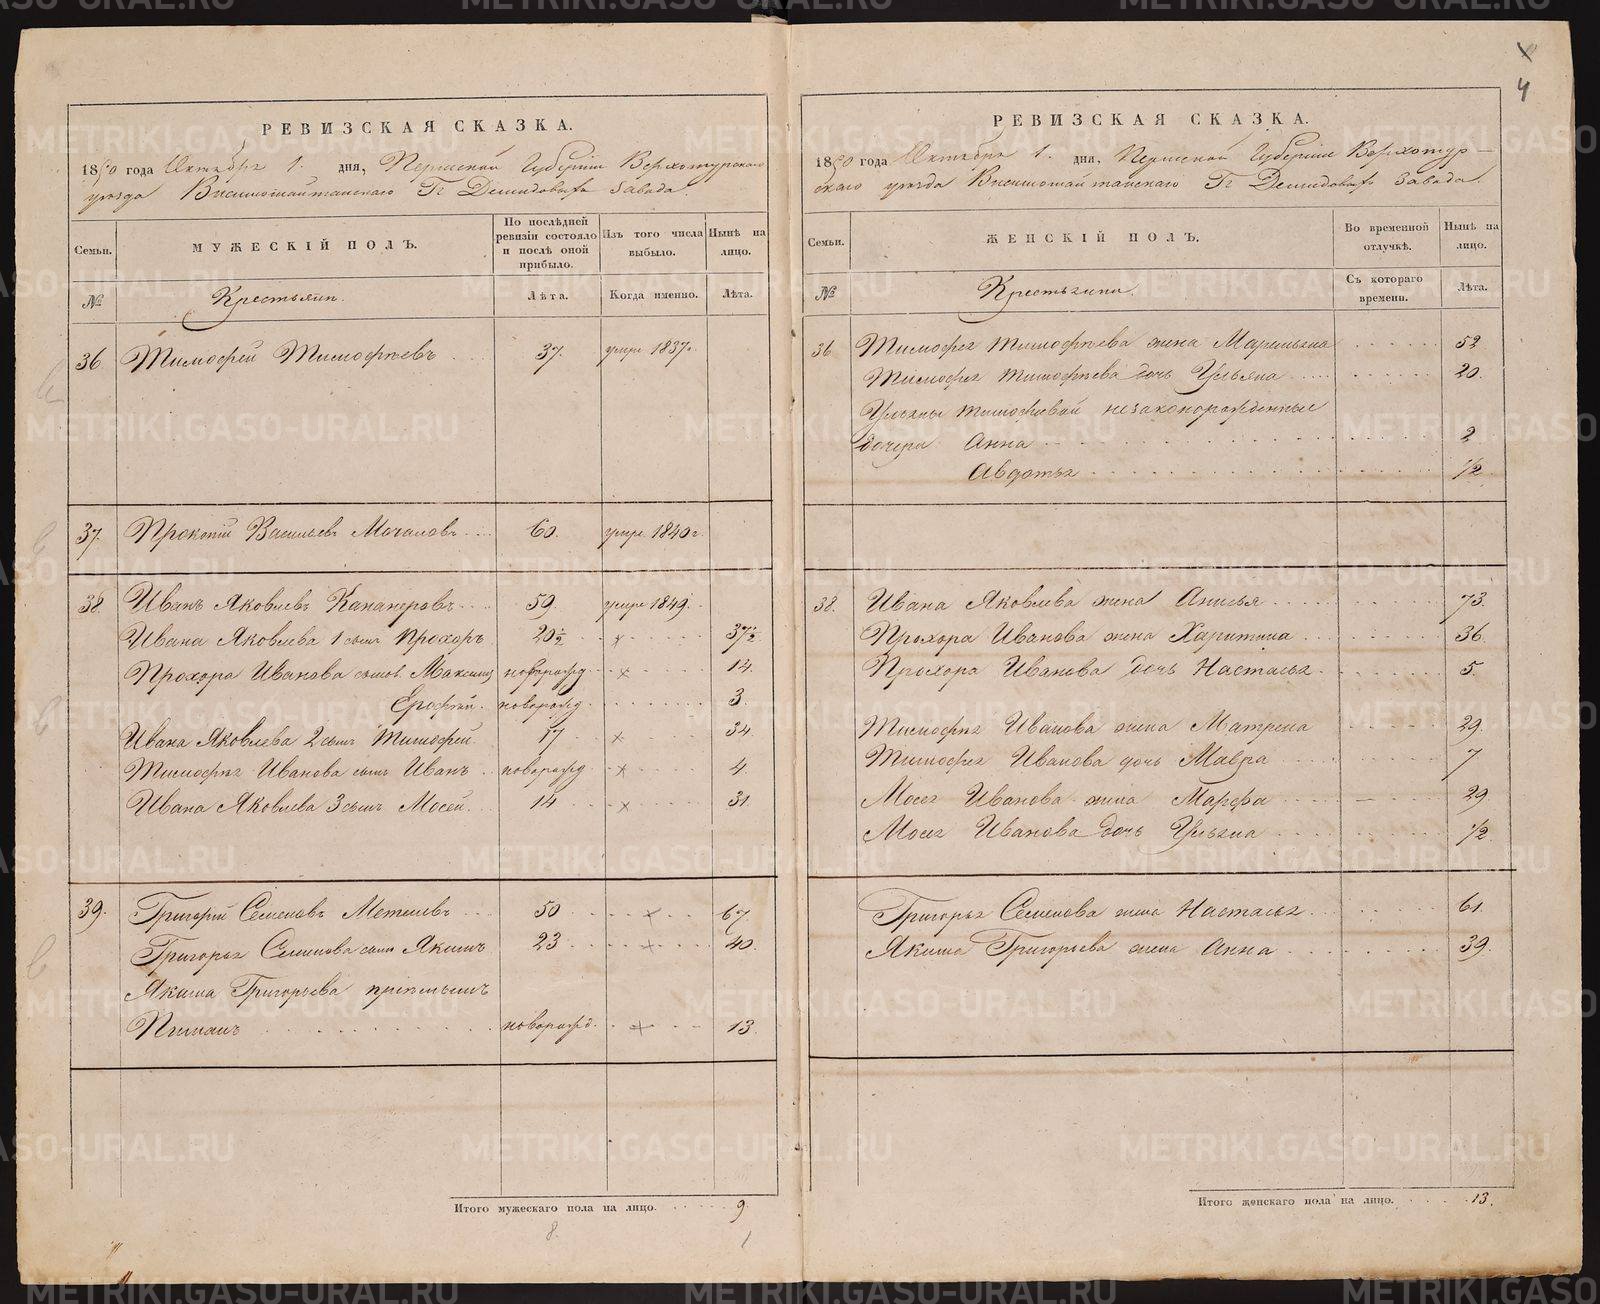 4
РЕВИЗСКАЯ СКАЗКА.
1850 года Октября 1. дня, Пермской Губернiи Верхотурскаго
уѣзда Висимошайтанскаго Гг Демидовыхъ Завода.
Семьи.
МУЖЕСКIЙ ПОЛЪ.
По послѣдней ревизiи состояло и послѣ оной прибыло.
Изъ того числа выбыло.
Нынѣ на лицо.
№
Крестьянъ.
Лѣта.
Когда именно.
Лѣта.
36 Тимофей Тимофѣевъ 37. умре 1837г.
37. Прокопiй Васильевъ Мочаловъ 60. умре 1840г.
38. Иванъ Яковлевъ 59. умре 1849.
Ивана Яковлева 1 сынъ Прохоръ 20½ 37½
Прохора Иванова сынов. Максимъ новорожд 14.
Ерофѣй. новорожд. 3.
Ивана Яковлева 2 сынъ Тимофей 17 34.
Тимофѣя Иванова сынъ Иванъ новорожд 4.
Ивана Яковлева 3 сынъ Мосей. 14 31.
39. Григорiй Семеновъ Метелевъ 50 67.
Григорья Семенова сынъ Якимъ 23 40.
Якима Григорьева прiемышъ
новорожд. 13.
Итого мужескаго пола на лицо. 9.
8.
1
РЕВИЗСКАЯ СКАЗКА.
1850 года Октября 1. дня, Пермской Губернiи Верхотур-
скаго уѣзда Висимошайтанскаго Гг Демидовыхъ Завода.
Семьи.
ЖЕНСКIЙ ПОЛЪ.
Во временной отлучкѣ.
Нынѣ на лицо.
№
Крестьянки.
Съ котораго времени.
Лѣта.
36. Тимофея Тимофѣева жена Маремьяна 52
Тимофея Тимофѣева дочь Ульяна 20.
Ульяны Тимофѣевой незаконорожденные
дочери Анна 2
Авдотья 1/2
38. Ивана Яковлева жена Анисья 73.
Прохора Иванова жена Харитина 36.
Прохора Иванова дочь Настасья 5.
Тимофѣя Иванова жена Матрена 29.
Тимофея Иванова дочь Мавра 7
Мосея Иванова жена Марфа 29
Мосея Иванова дочь Ульяна 1/2
Григорья Семенова жена Настасья 61.
Якима Григорьева жена Анна 39.
Итого женскаго пола на лицо. 13.
METRIKI.GASO-URAL.RU